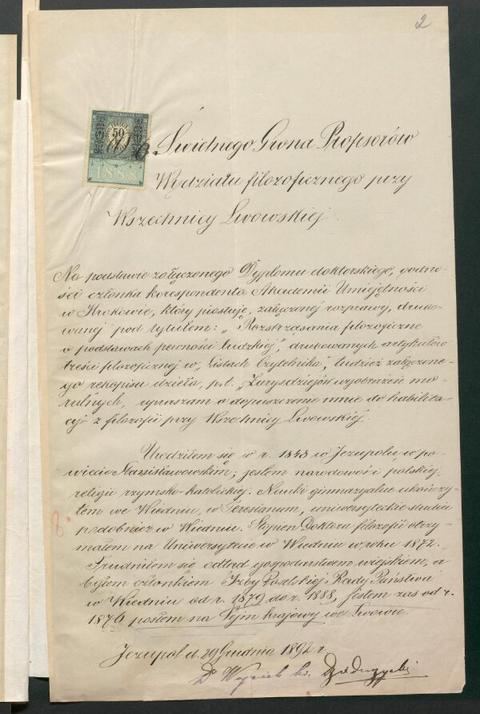 2
50
1888
Do Świetnego Grona Profesorów
Wydziału filozoficznego przy
Wszechnicy Lwowskiej.
Na podstawie załączonego Dyplomu doktorskiego, godno-
ści członka korespondenta Akademii Umiejętności
w Krakowie, który piastuję, załączonej rozprawy, druko-
wanej pod tytułem: „Roztrząsania filozoficzne
o podstawach pewności ludzkiej," drukowanych artykułów
treści filozoficznej w „Listach z Czytelnika", tudzież załączone-
go rękopisu dzieła, p.t. „Zarys dziejów wyobrażeń mo-
ralnych, upraszam o dopuszczenie mnie do habilita-
cyi z filozofii przy Wszechnicy Lwowskiej.
Urodziłem się w r. 1848 w Jezupolu w po-
wiecie Stanisławowskim; jestem narodowości polskiej,
religii rzymsko-katolickiej. Nauki gimnazyalne ukończy-
łem we Wiedniu, w Teresianum, uniwersyteckie studia
podobnież w Wiedniu. Stopień Doktora filozofii otrzy-
małem na Uniwersytecie w Wiedniu w roku 1872.
Trudniłem się odtąd gospodarstwem wiejskiem, a
byłem członkiem Izby Poselskiej Rady Państwa
w Wiedniu od r. 1879 do r. 1888, jestem zaś od r.
1876 posłem na Sejm krajowy we Lwowie.
Jezupol d. 29 Grudnia 1892 r.
Dr Wojciech hr. Dzieduszycki